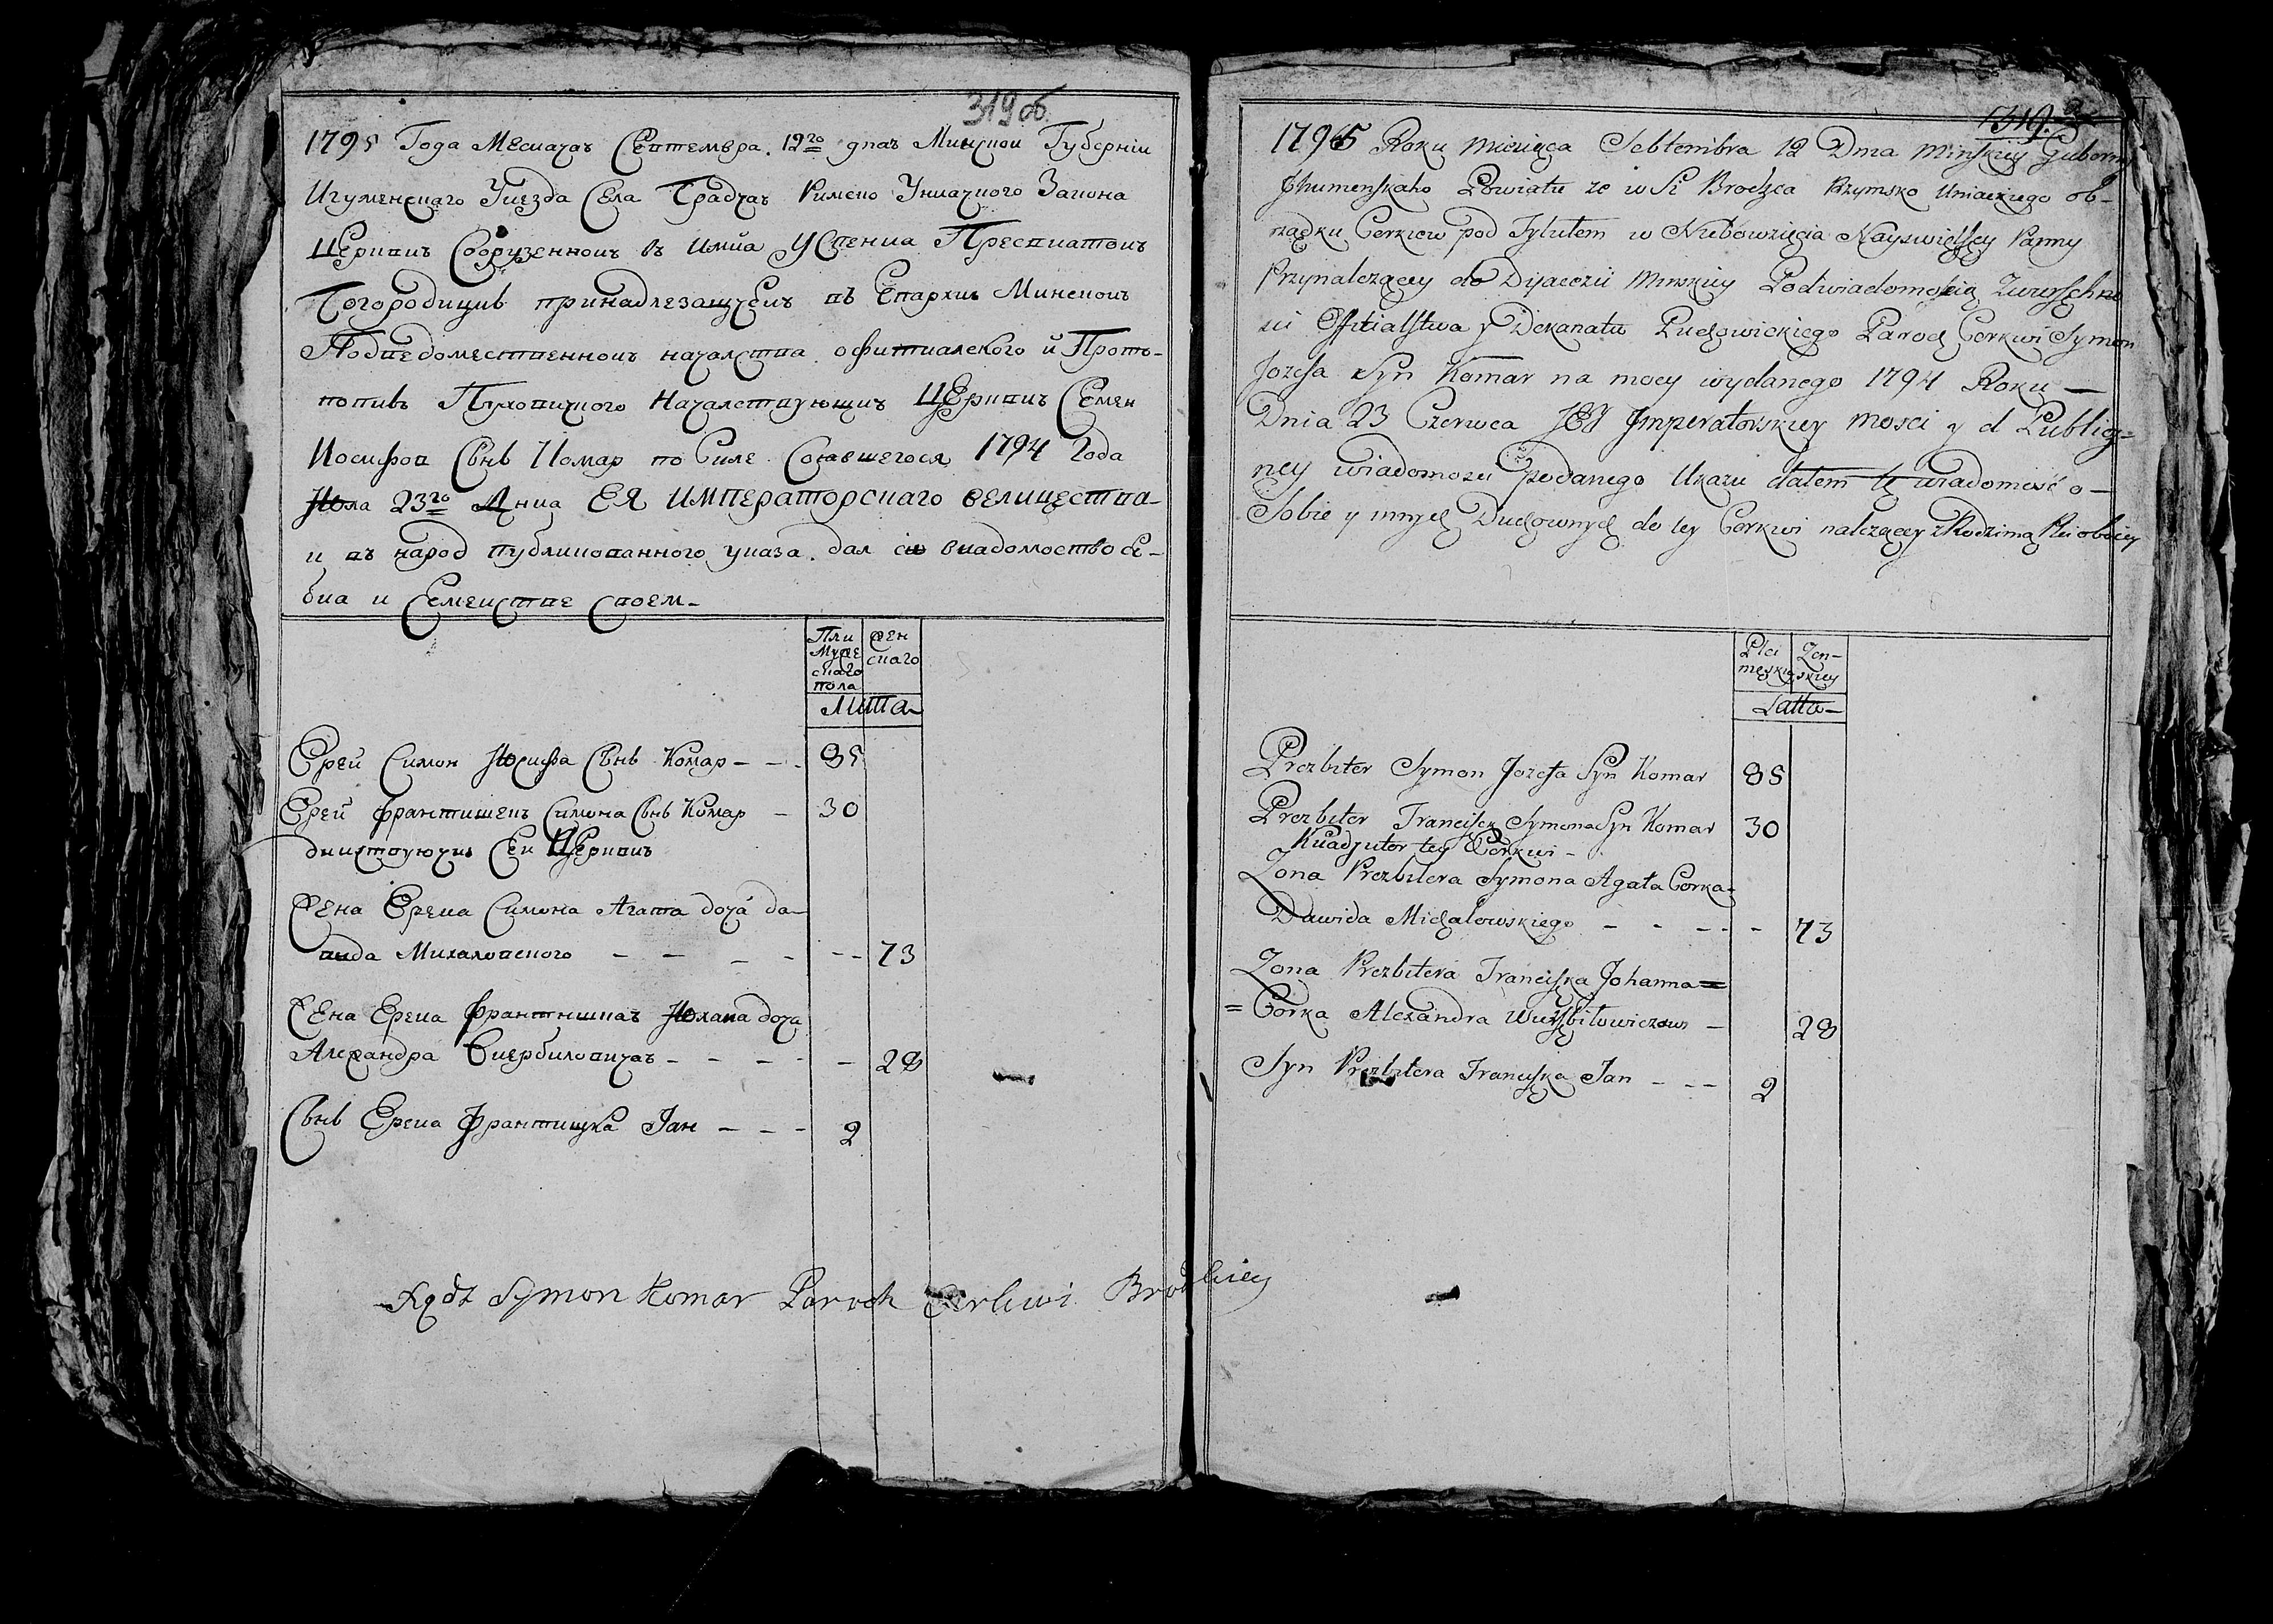 319 об.
1795 Года Месиаха Септемвра. 12го днаъ Минской Губерніи
Игуменскаго Уиезда Села Брадчаъ Римско Униацкого Закона
Церквиъ Сооруженноиъ въ Имиа Успениа Пресвиатоиъ
Богородицив принадлезащуеиъ въ Епархиъ Минскоиъ
Подведомественноиъ началства офитиалского й Прото-
попивъ Пуховицкого Началствующиъ Церквиъ Семен
Иосифов Сынь Комар по Силе Сотавшегося 1794 Года
Июла 23го Дниа ЕЯ Императорскаго Велицества-
и въ народ публикованного указа. дал сию виадомоство Се-
биа и Семеистве своем-
Пли Муже скаго пола
жен скаго
Лита-
Ерей Симон Иосифа Сынь Комар - - - 85
Ерей Франтишекъ Симона Сынь Комар - 30
диистуючи Сеи Церквиъ
Жена Ереиа Симона Агата доча да-
вида Михаловского - - - - - - 73
Жена Ереиа Франтишкаъ Иохана доча
Алехандра Виербиловичаъ - - - - - 28
Сынь Ереиа Франтишка Јан - - - 2
Xądz Symon Komar Paroch Cerkwi Brodzkiey
319.
1795 Roku Miesiąca Sebtembra 12 Dnia Minskiey Guberny
Jhumenskaho Powiatu ze wsi Brodzca Rzymsko Uniackiego ob-
rządku Cerkiew pod Tytułem w Niebowzięcia Nayswiętszey Panny
Przynalezącey do Dyaeczii Minskiey Podwiadomością Zwierzchno
sci Offitialstwa y Dekanatu Puchowickiego Paroch Cerkwi Symon
Jozefa Syn Komar na mocy wydanego 1794 Roku -
Dnia 23 Czerwca JEJ Jmperatorskiey Mosci y d Publicz=
ney wiadomosci podanego Ukazu dałem tę wiadomość o-
Sobie y innych Duchownych do tey Cerkwi nalezącey z Rodziną Płci oboiey
Płci męskiey
Zen-skiey
Latta-
Prezbiter Symon Jozefa Syn Komar 85
Prezbiter Franciszek Symona Syn Komar 30
Kuadjutor tey Cerkwi -
Zona Prezbitera Symona Agata Corka-
Dawida Michałowskiego - - - - - 73
Zona Prezbitera Franciszka Johanna=
= Corka Alexandra Wierzbiłowiczow - 28
Syn Prezbitera Franciszka Jan - - - 2